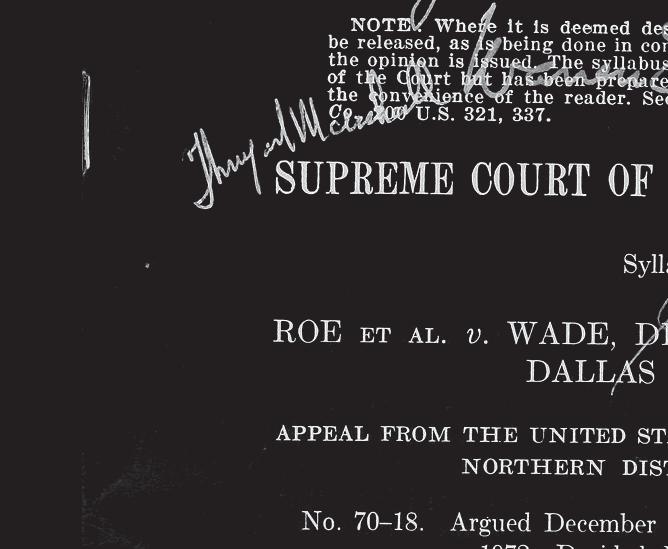 NOTE: Where it is deemed des
be released, as is being done in con
the opinion is issued. The syllabus
of the Court but has been prepare
the convenience of the reader. See
Co., 200 U.S. 321, 337.
Thurgood Marshall
SUPREME COURT OF
Sylla
ROE ET AL. v. WADE, DI
DALLAS
APPEAL FROM THE UNITED STA
NORTHERN DIST
No. 70–18. Argued December